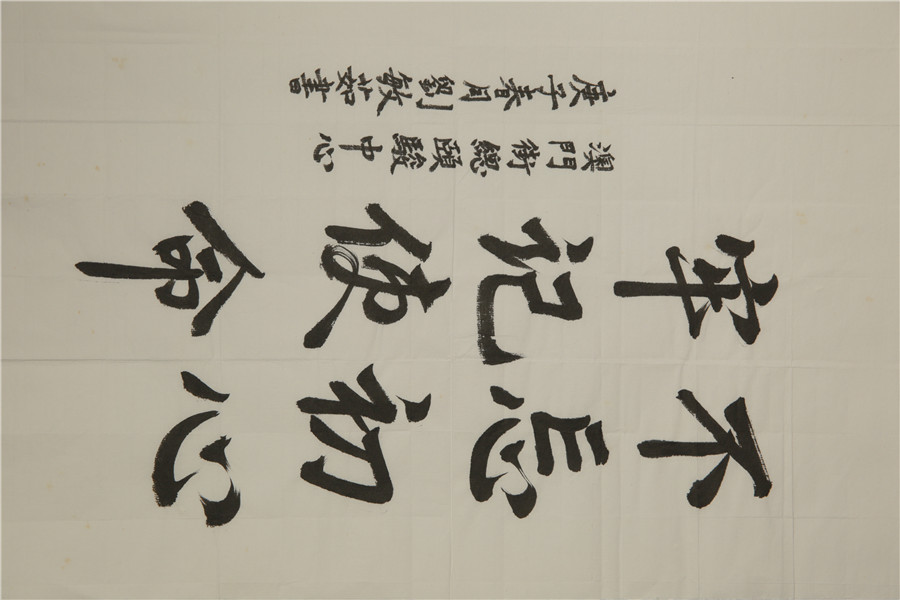 不忘初心
牢记使命
澳門街總頤駿中心
庚子春月劉敏茹書